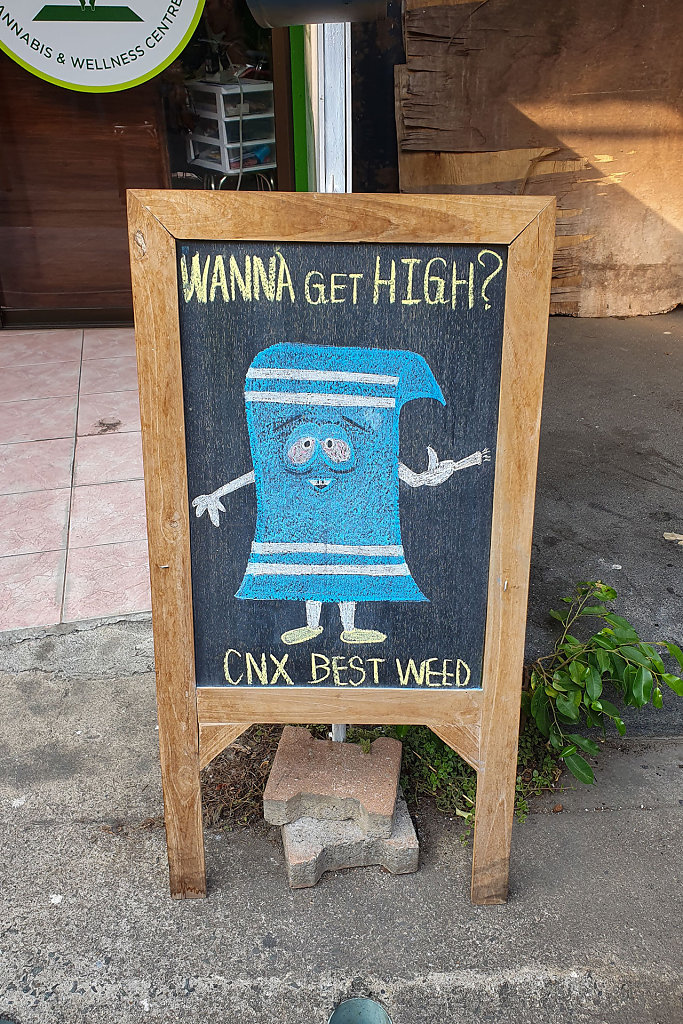 ANNABIS & WELLNESS CENTRE
WANNA GET HIGH?
CNX BEST WEED